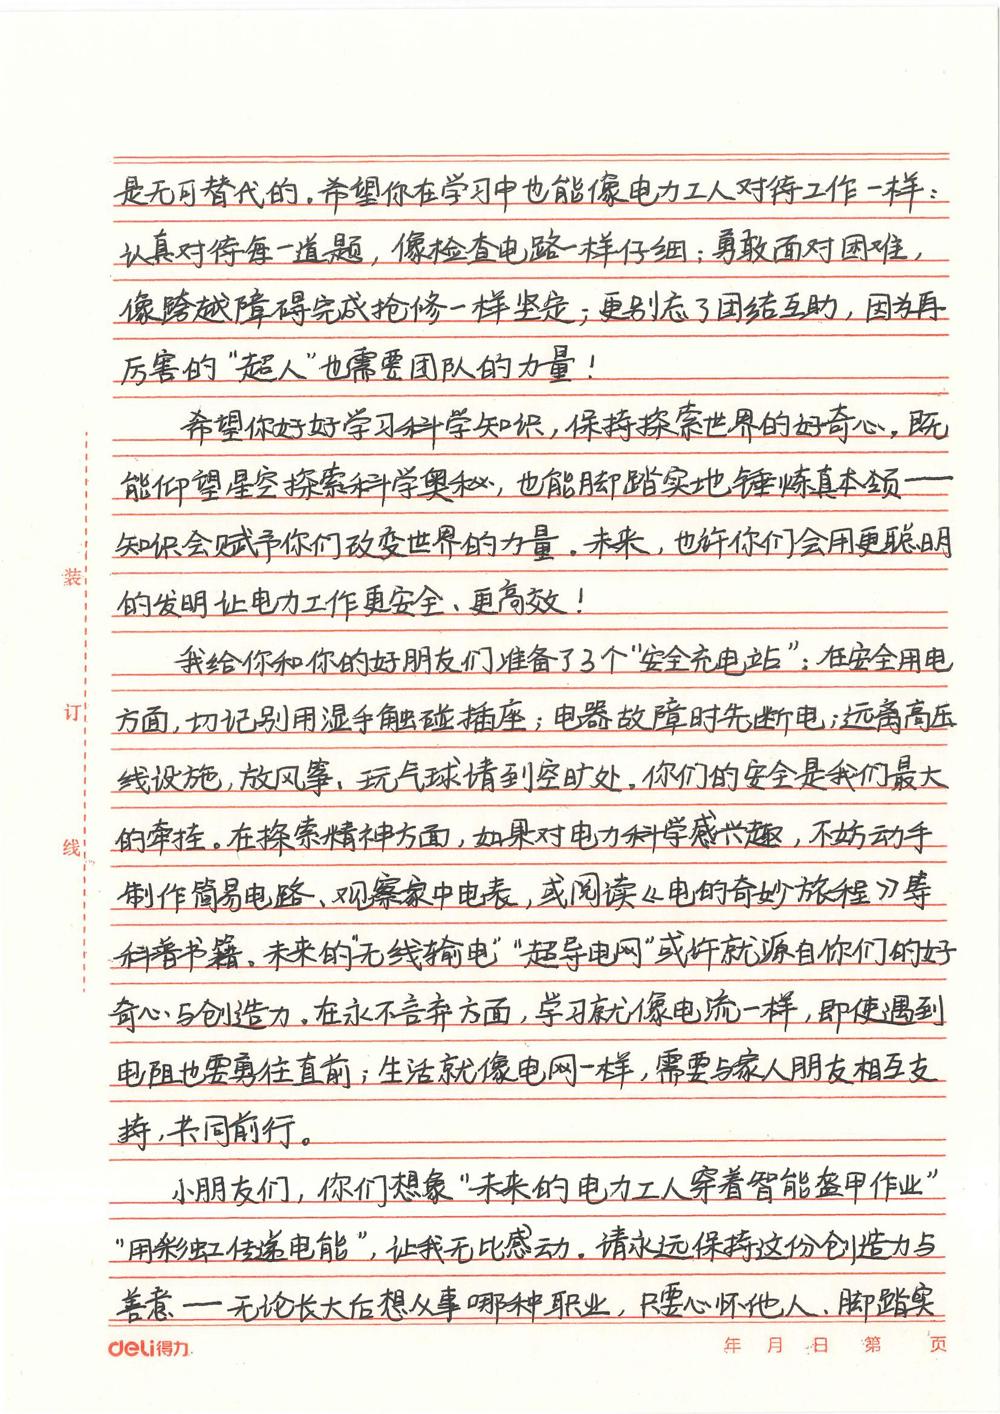 是无可替代的。希望你在学习中也能像电力工人对待工作一样：
认真对待每一道题，像检查电路一样仔细；勇敢面对困难，
像跨越障碍完成抢修一样坚定；更别忘了团结互助，因为再
厉害的“超人”也需要团队的力量！
希望你好好学习科学知识，保持探索世界的好奇心。既
能仰望星空探索科学奥秘，也能脚踏实地锤炼真本领——
知识会赋予你们改变世界的力量。未来，也许你们会用更聪明
的发明让电力工作更安全、更高效！
我给你和你的好朋友们准备了3个“安全充电站”：在安全用电
方面，切记别用湿手触碰插座；电器故障时先断电；远离高压
线设施，放风筝、玩气球请到空旷处。你们的安全是我们最大
的牵挂。在探索精神方面，如果对电力科学感兴趣，不妨动手
制作简易电路、观察家中电表，或阅读《电的奇妙旅程》等
科普书籍。未来的“无线输电”“超导电网”或许就源自你们的好
奇心与创造力。在永不言弃方面，学习就像电流一样，即使遇到
电阻也要勇往直前；生活就像电网一样，需要与家人朋友相互支
持，共同前行。
小朋友们，你们想象“未来的电力工人穿着智能盔甲作业”
“用彩虹传递电能”，让我无比感动。请永远保持这份创造力与
善意——无论长大后想从事哪种职业，只要心怀他人、脚踏实
装
订
线
deli得力
年 月 日 第 页